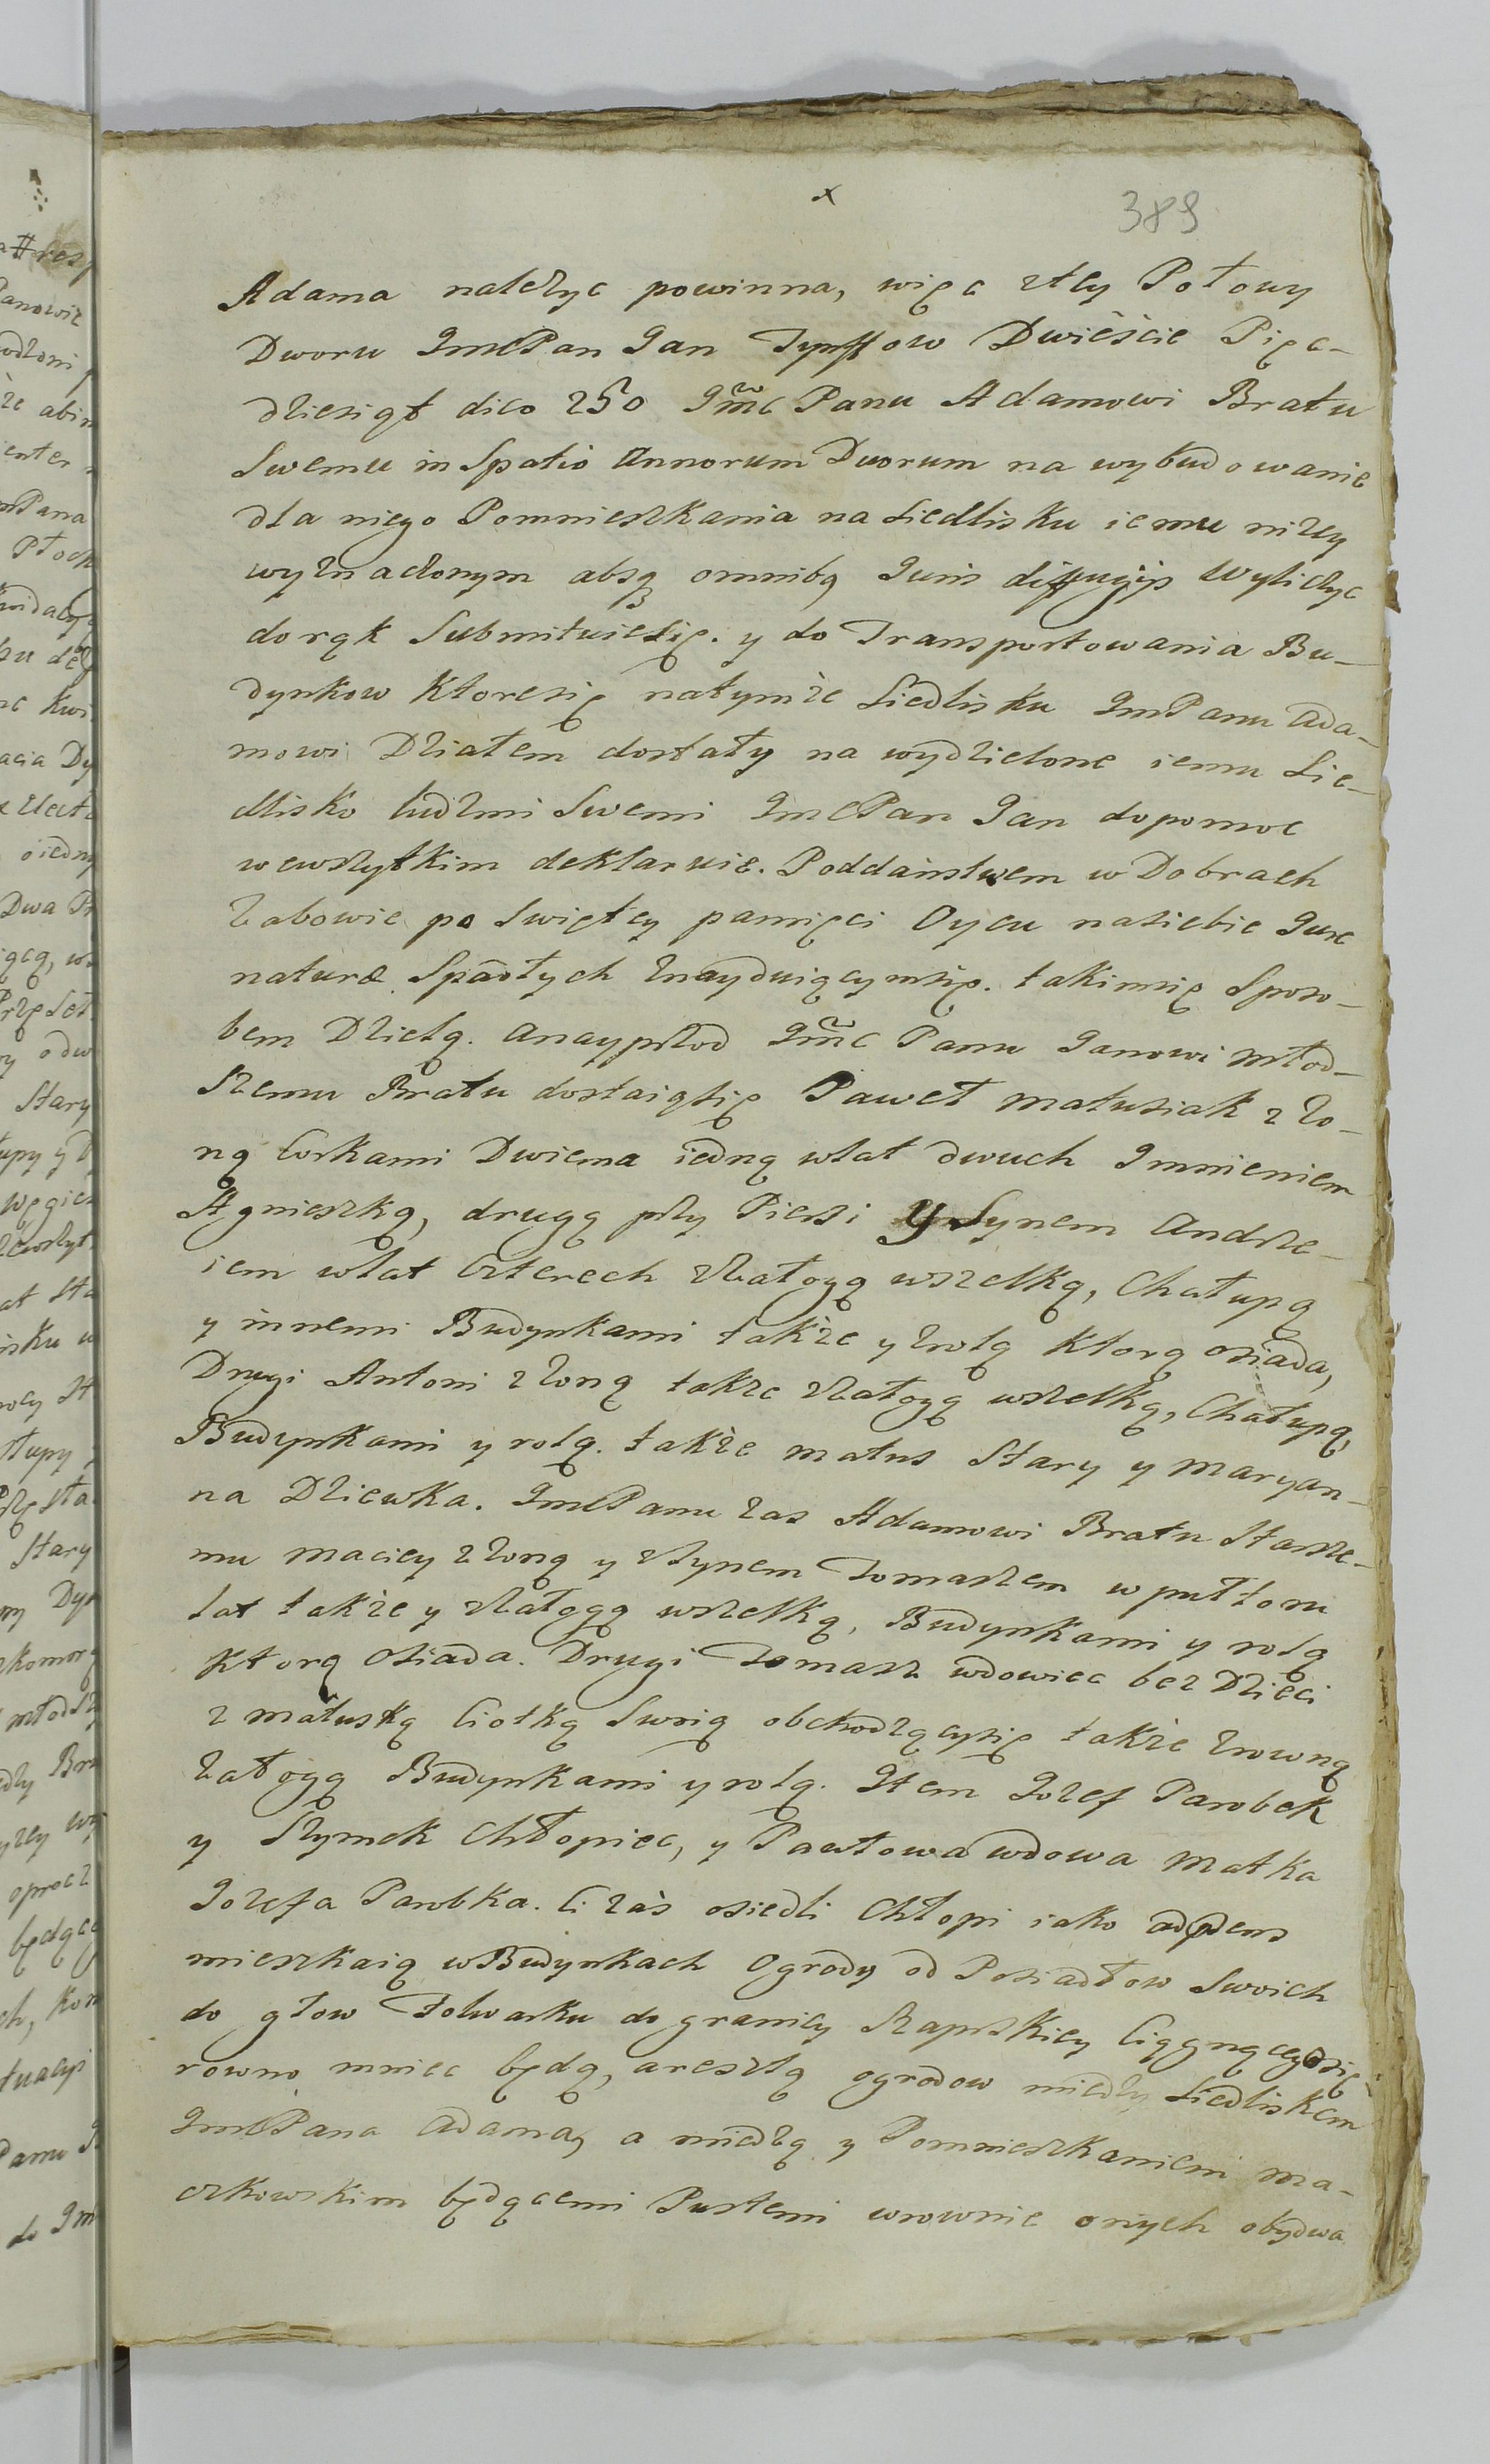 x
389
Adama należyc powinna, więc z tey Połowy
Dworu JmcPan Jan Tynffow Dwieście Pięc-
dziesiąt dico 250 Jmc Panu Adamowi Bratu
Swemu in Spatio Annorum Duorum na wybudowanie
dla niego Pomnieszkania na Siedlisku iemu niżey
wyznaczonym absq omnibq Juris diffugijs Wyliczyc
do rąk Submituiesię. y do Transportowania Bu-
dynkow Ktoresię natymże Siedlisku JmPanu Ada-
mowi Działem dostały na wydzielone iemu Sie-
dlisko ludzmi Swemi JmcPan Jan dopomoc
wewszytkim deklaruie. Poddaństwem w Dobrach
Zabowie po Swiętey pamięci Oycu nasiebie Jure
naturæ Spadłych Znayduiącymsię. takimsię Sposo-
bem Dzielą. anayprzod Jmc Panu Janowi Młod-
szemu Bratu dostaiąsię Paweł Matusiak z Żo-
ną Corkami Dwiema iedną wlat dwuch Jmnieniem
Agnieszką, drugą przy Piersi y Synem Andrze-
iem wlat Czterech zZałogą wszelką, Chałupą
y innemi Budynkami także y zrolą Ktorą osiada,
Drugi Antoni zŻoną także zZałogą wszelką, Chałupą,
Budynkami y rolą. także Matus Stary y Maryan-
na Dziewka. JmcPanu Zas Adamowi Bratu Starsze-
mu Maciey zŻoną y zSynem Tomaszem w pułtoru
lat także y zZałogą wszelką, Budynkami y rolą
Ktorą Osiada. Drugi Tomasz wdowiec bez Dzieci
z Matuską Ciotką Swoią obchodzącysię także Zrowną
Załogą Budynkami y rolą. Jtem Jozef Parobek
y Szymek Chłopiec, y Pawłowa wdowa Matka
Jozefa Parobka. Ci zaś osiedli Chłopi iako adpdens
mieszkaią w Budynkach Ogrody od Posiadłow Swoich
do głow Folwarku do granicy Szapskiey Ciągnącegosię
rowno mniec będą, aresztą ogrodow miedzy Siedliskiem
JmcPana Adama, a miedzą y Pomnieszkaniem Ma-
czkowskim będącemi Pustemi wrownie onych obydwa